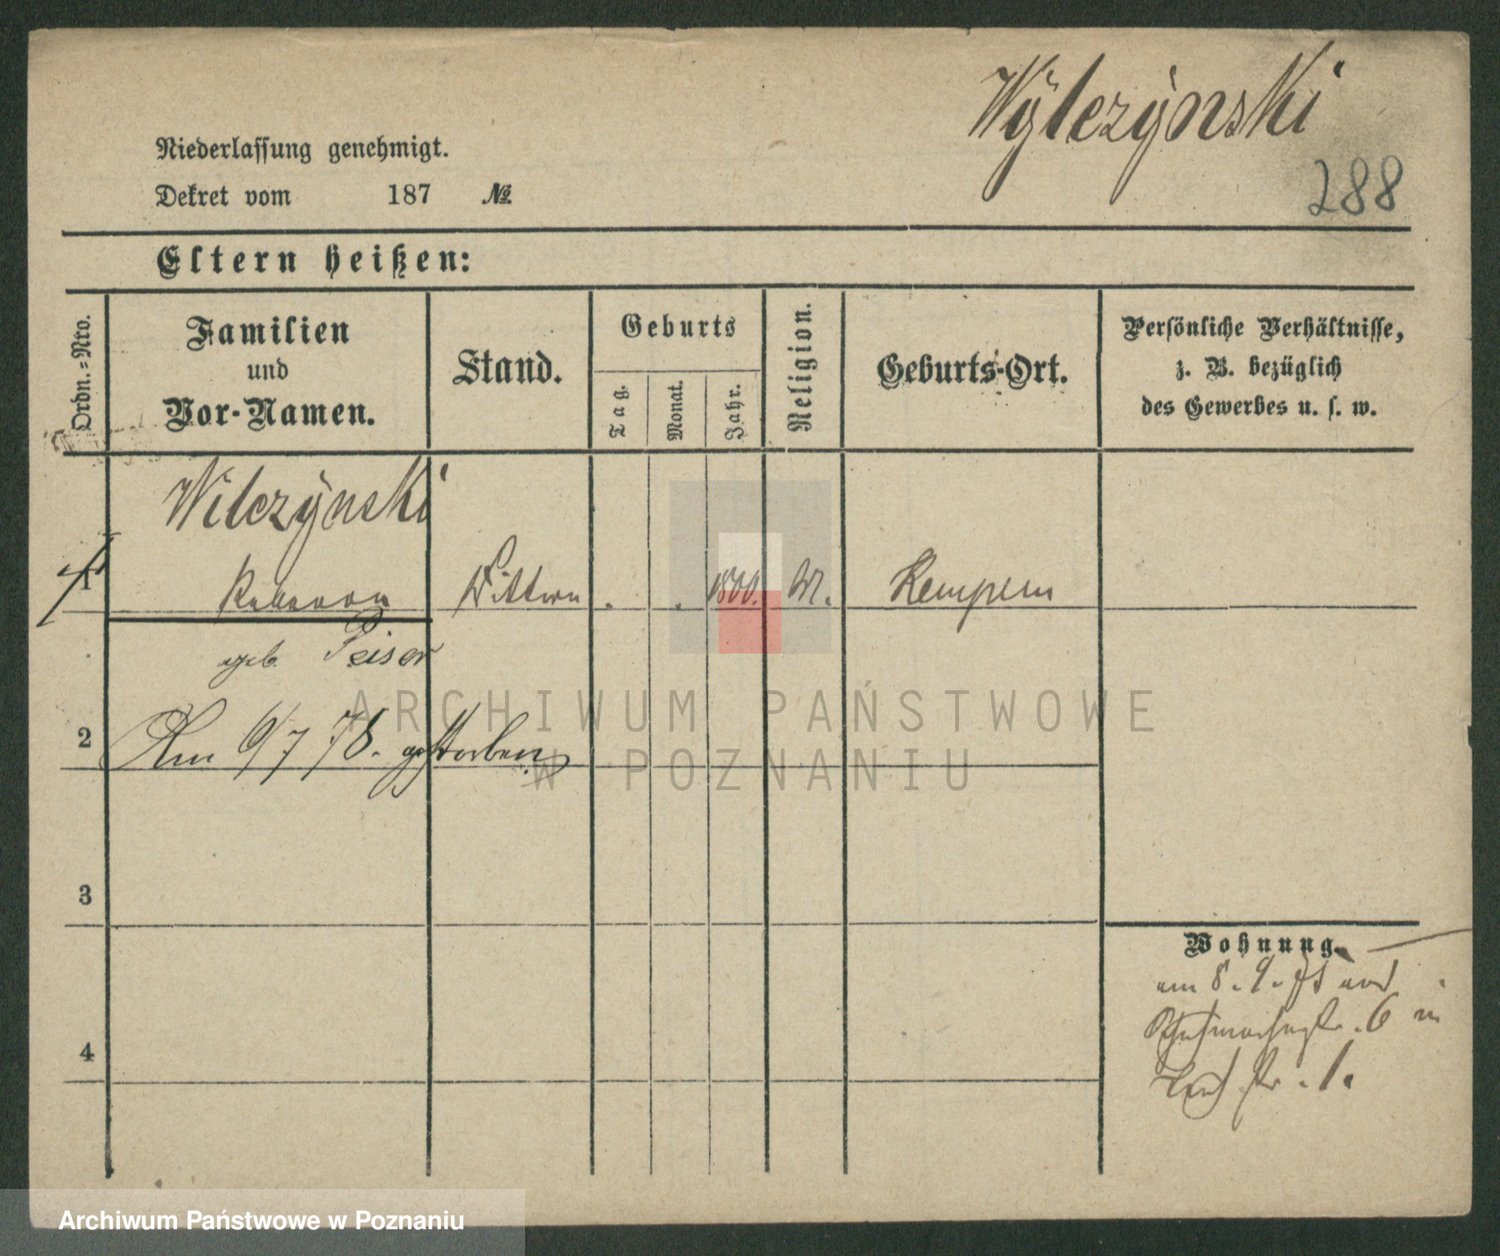 Wylczynski
288
Niederlassung genehmigt.
Dekret vom 187 №
Eltern heißen:
Ordn.=Nro.
Familien und Vor-Namen.
Stand.
Geburts
Tag.
Monat.
Jahr.
Religion.
Geburts-Ort.
Persönliche Verhältnisse,
z. B. bezüglich
des Gewerbes u. s. w.
Wilczynski
1 Wittwe 1800. M. Kempen
geb. Peiser
2 Am 6/7 78. gestorben
3
4
Wohnung.
am 8. 9. von
6 in
str. 1.
ARCHIWUM PAŃSTWOWE
W POZNANIU
Archiwum Państwowe w Poznaniu